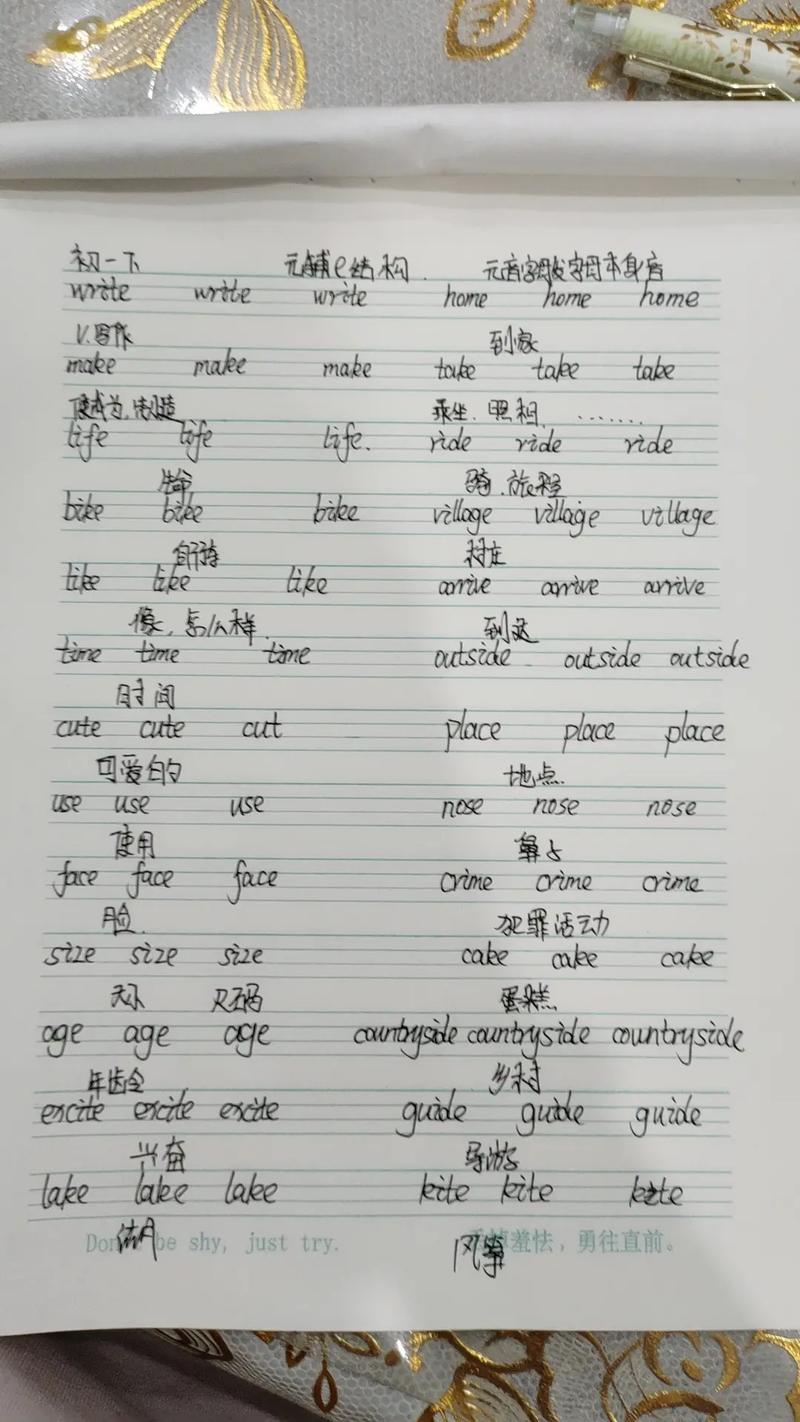 初一下 元辅e结构. 元音字母发字母本身音
write write write home home home
V.写作 到家
make make make take take take
使成为,制造 乘坐.照相. ......
life life life. ride ride ride
生命 骑.旅程
bike bike bike village village village
自行车 村庄
like like like arrive arrive arrive
像,怎么样. 到达
time time time outside outside outside
时间
cute cute cut place place place
可爱的 地点.
use use use nose nose nose
使用 鼻子
face face face crime crime crime
脸. 犯罪活动
size size size cake cake cake
大小 尺码 蛋糕
age age age countryside countryside countryside
年龄 乡村
excite excite excite guide guide guide
兴奋 导游
lake lake lake kite kite kite
湖 风筝
be shy, just try. 羞怯，勇往直前。